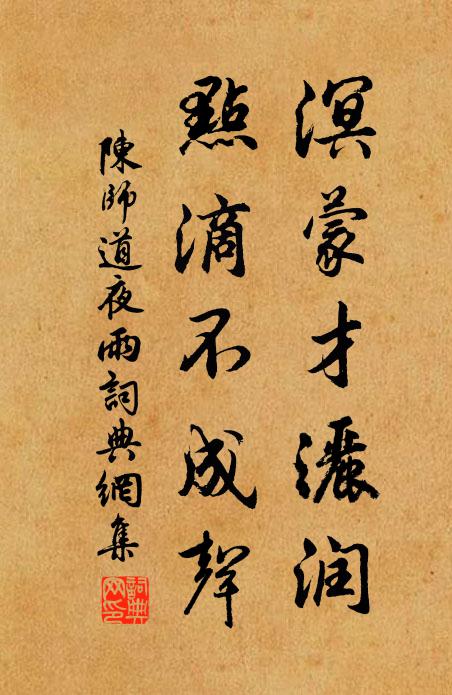 溟蒙才灑润
點滴不成聲
陳師道夜雨詞典網集
詞典網印